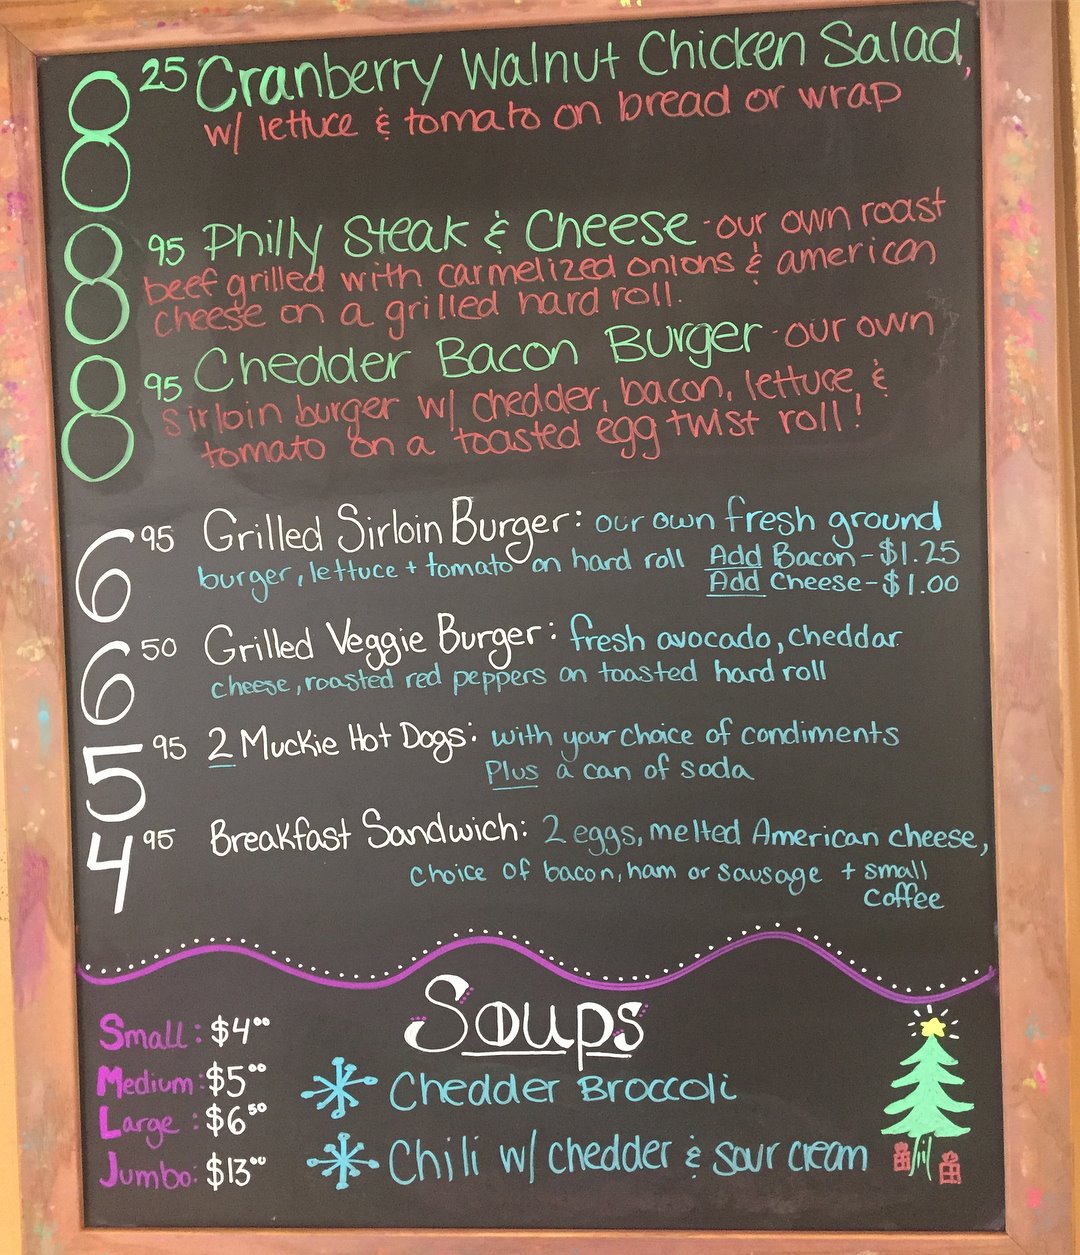 8 25 Cranberry Walnut Chicken Salad,
w/ lettuce & tomato on bread or wrap
8 95 Philly Steak & Cheese - our own roast
beef grilled with carmelized onions & american
cheese on a grilled hard roll.
8 95 Chedder Bacon Burger - our own
sirloin burger w/ chedder, bacon, lettuce &
tomato on a toasted egg twist roll!
6 95 Grilled Sirloin Burger: our own fresh ground
burger, lettuce + tomato on hard roll Add Bacon - $1.25
Add Cheese - $1.00
6 50 Grilled Veggie Burger: fresh avocado, cheddar
cheese, roasted red peppers on toasted hard roll
5 95 2 Muckie Hot Dogs: with your choice of condiments
Plus a can of soda
4 95 Breakfast Sandwich: 2 eggs, melted American cheese,
choice of bacon, ham or sausage + small
coffee
Soups
Small: $4 00
Medium: $5 00
Large: $6 50
Jumbo: $13 00
Chedder Broccoli
Chili w/ chedder & sour cream